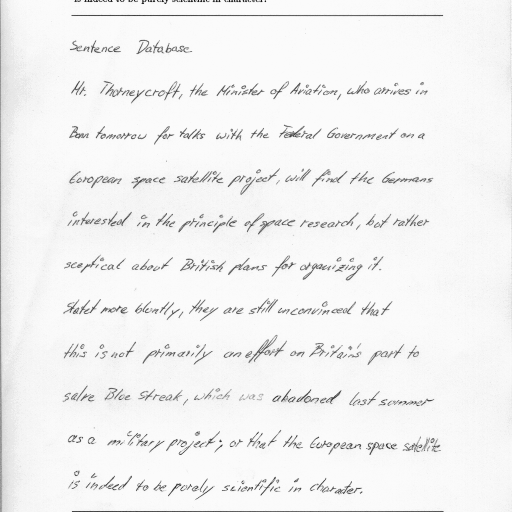 is indeed to be purely scientific in character.
Sentence Database
Mr. Thorneycroft, the Minister of Aviation, who arrives in
Bonn tomorrow for talks with the Federal Government on a
European space satellite project, will find the Germans
interested in the principle of space research, but rather
sceptical about British plans for organizing it.
Statet more bluntly, they are still unconvinced that
this is not primarily an effort on Britain's part to
salve Blue Streak, which was abadoned last summer
as a military project; or that the European space satellite
is indeed to be purely scientific in character.